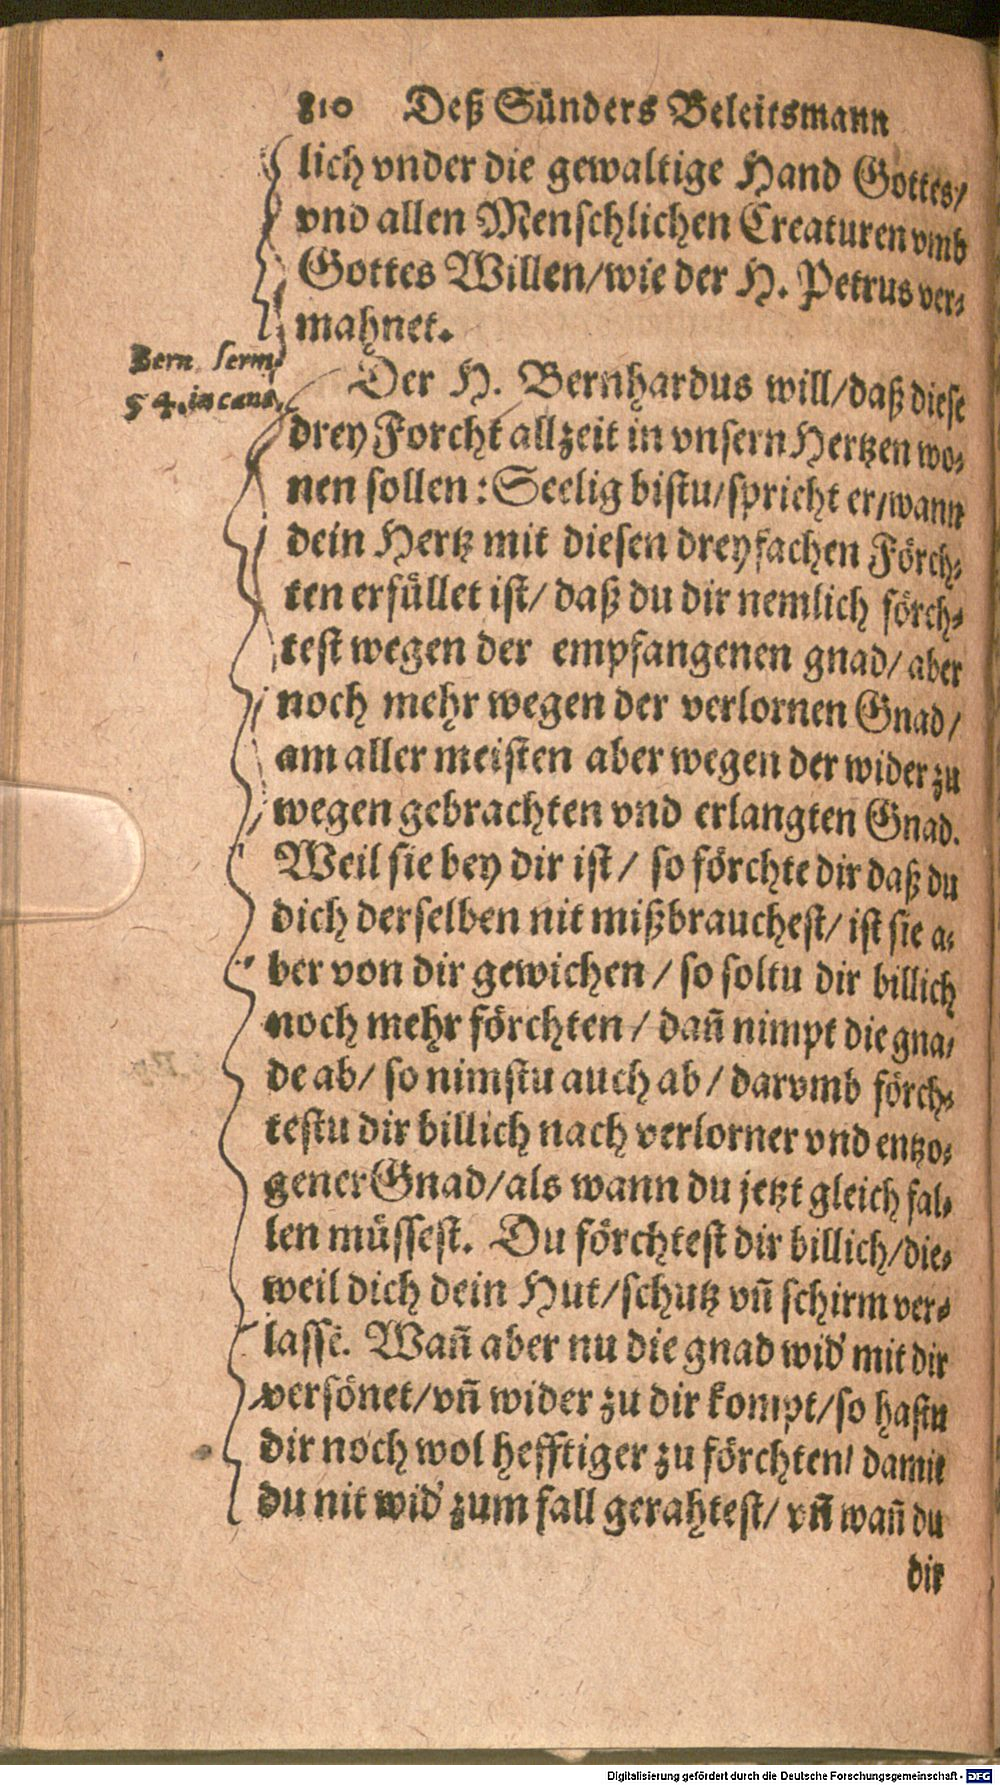 810 Deß Sünders Beleitsmann
lich vnder die gewaltige Hand Gottes/
vnd allen Menschlichen Creaturen vmb
Gottes Willen/wie der H. Petrus ver-
mahnet.
Bern. serm.
54. in cant.
Der H. Bernhardus will/daß diese
drey Forcht allzeit in vnsern Hertzen wo-
nen sollen: Seelig bistu/spricht er/wann
dein Hertz mit diesen dreyfachen Förch-
ten erfüllet ist/ daß du dir nemlich förch-
test wegen der empfangenen gnad/ aber
noch mehr wegen der verlornen Gnad/
am aller meisten aber wegen der wider zu
wegen gebrachten vnd erlangten Gnad.
Weil sie bey dir ist/ so förchte dir daß du
dich derselben nit mißbrauchest/ ist sie a-
ber von dir gewichen/ so soltu dir billich
noch mehr förchten/ dañ nimpt die gna-
de ab/ so nimstu auch ab/ darvmb förch-
testu dir billich nach verlorner vnd entzo-
gener Gnad/als wann du jetzt gleich fal-
len müssest. Du förchtest dir billich/die-
weil dich dein Hut/schutz vñ schirm ver-
lassē. Wañ aber nu die gnad wid' mit dir
versönet/vñ wider zu dir kompt/so hastu
dir noch wol hefftiger zu förchten/ damit
du nit wid' zum fall gerahtest/ vñ wañ du
dir
Digitalisierung gefördert durch die Deutsche Forschungsgemeinschaft - DFG